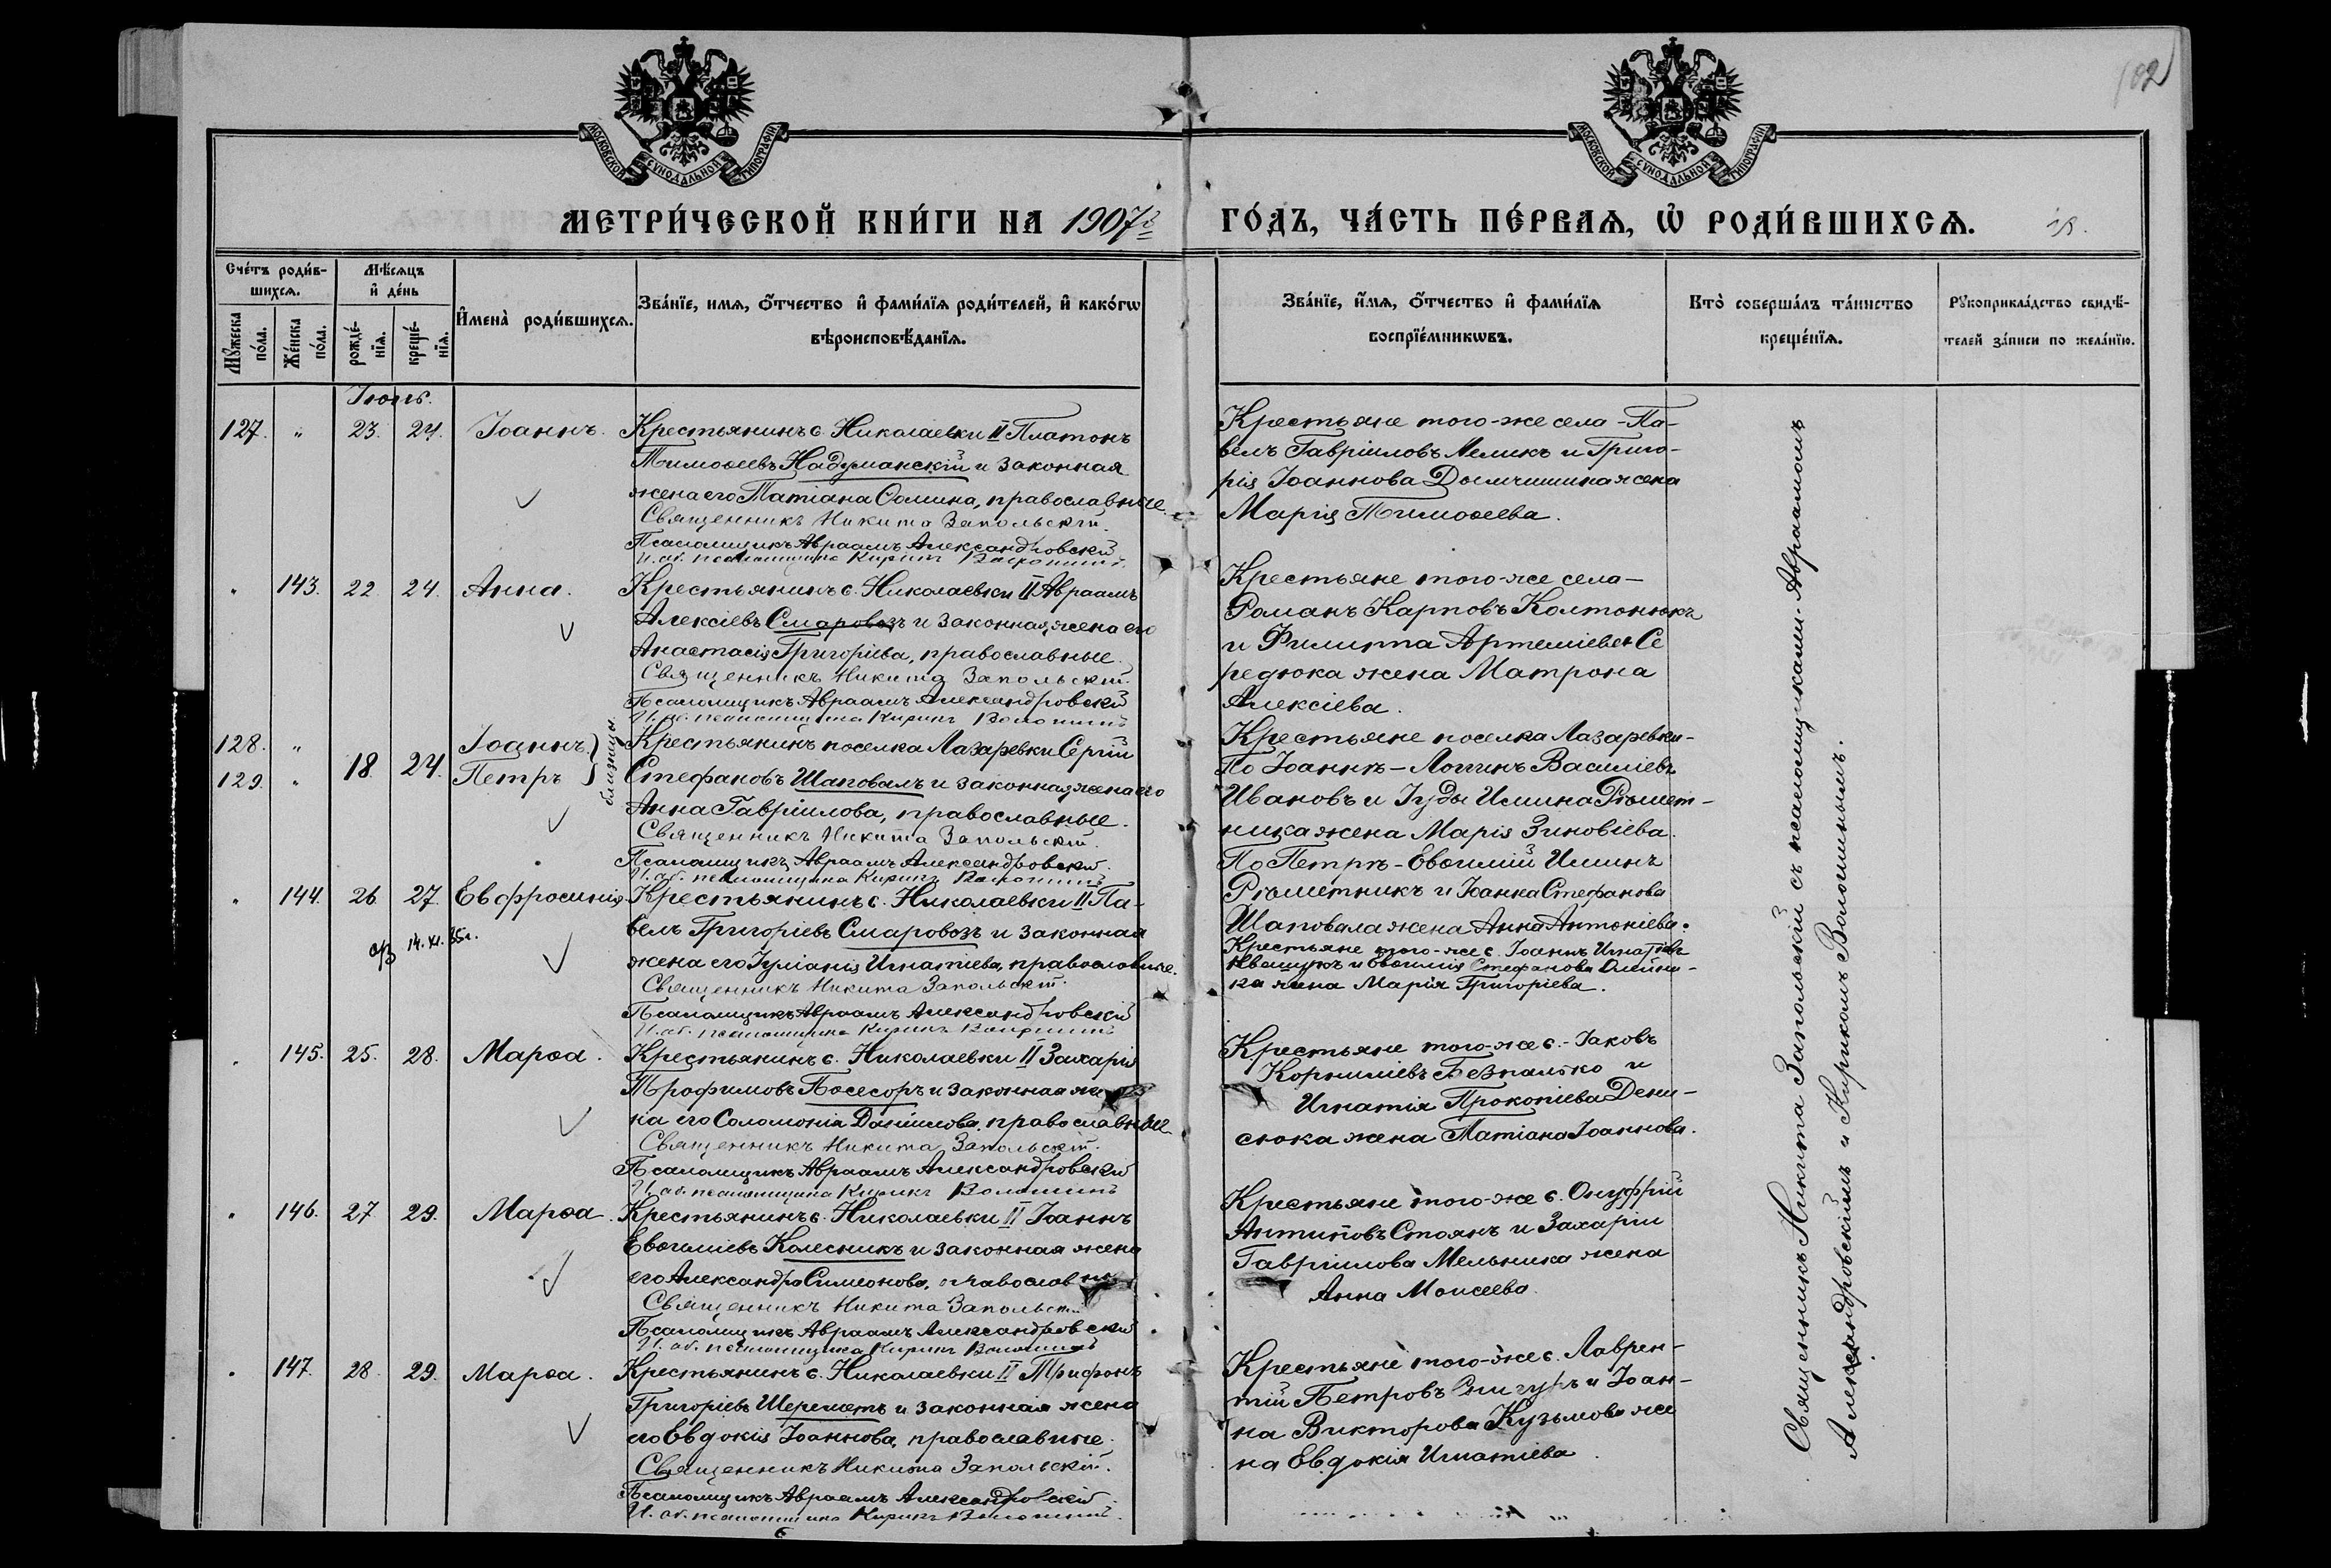 102
МОСКОВСКОЙ СУНОДАЛЬНОЙ ТИПОГРАФІИ
МОСКОВСКОЙ СУНОДАЛЬНОЙ ТИПОГРАФІИ
МЕТРИ́ЧЕСКОЙ КНИ́ГИ НА 1907й
ГО́ДЪ, ЧА́СТЬ ПЕ́РВАѦ, Ѡ҆ РОДИ́ВШИХСѦ.
Сче́тъ роди́в-
шихсѧ.
Мꙋ́жеска по́ла.
Же́нска по́ла.
Мѣ́сѧцъ
и҆ де́нь
рожде́-нїѧ.
креще́-нїѧ.
И҆мена̀ роди́вшихсѧ.
Зва́нїе, имѧ, ѻ҆́тчество и҆ фами́лїѧ роди́телей, и҆ како́гѡ
вѣроисповѣ́данїѧ.
Зва́нїе, и҆́мѧ, ѻ҆́тчество и҆ фами́лїѧ
воспрїе́мникѡвъ.
Кто̀ соверша́лъ та́инство
креще́нїѧ.
Рꙋкоприкла́дство свидѣ́-
телей за́писи по жела́нїю.
Іюнь.
127. " 23. 24. Іоаннъ. Крестьянинъ с. Николаевки II Платонъ
Тимоѳеевъ Надуманскій и законная
жена его Татіана Ѳомина, православные.
Священникъ Никита Запольскій.
Псаломщикъ Авраамъ Александровскій
И. об. псаломщика Кирикъ Волошинъ
Крестьяне того-же села - Па-
велъ Гавріиловъ Меликъ и Григо-
рія Іоаннова жена
Марія Тимоѳеева.
" 143. 22. 24. Анна. Крестьянинъ с. Николаевки II Авраамъ
Алексіевъ Смаровозъ и законная жена его
Анастасія Григоріева, православные.
Священникъ Никита Запольскій.
Псаломщикъ Авраамъ Александровскій
И. об. псаломщика Кирикъ Волошинъ
Крестьяне того-же села -
Романъ Карповъ Колтонюкъ
и Филиппа Артеміева Се
редюка жена Матрона
Алексіева.
128. " 18 24. Іоаннъ. близнецы
129. " Петръ
Крестьянинъ поселка Лазаревки Сергій
Стефановъ Шаповалъ и законная жена его
Анна Гавріилова, православные.
Священникъ Никита Запольскій.
Псаломщикъ Авраамъ Александровскій.
И. об. псаломщика Кирикъ Волошинъ
Крестьяне поселка Лазаревки -
По Іоаннѣ - Логинъ Василіевъ
Ивановъ и Іуды Илина Рѣшет-
ника жена Марія Зиновіева.
По Петрѣ - Евѳимій Илинъ
Рѣшетникъ и Іоанна Стефанова
Шаповала жена Анна Антоніева.
" 144. 26. 27. Евфросинія Крестьянинъ с. Николаевки II Па-
14. XI. 35г.
велъ Григоріевъ Смаровозъ и законная
жена его Іуліанія Игнатіева, православные.
Священникъ Никита Запольскій.
Псаломщикъ Авраамъ Александровскій
И. об. псаломщика Кирикъ Волошинъ
Крестьяне того-же с. Іоаннъ Игнатіевъ
и Евѳимія Стефанова Олейни-
ка жена Марія Григоріева.
" 145. 25. 28. Марѳа. Крестьянинъ с. Николаевки II Захарія
Трофимовъ Посесоръ и законная же
на его Соломонія Даніилова, православные.
Священникъ Никита Запольскій.
Псаломщикъ Авраамъ Александровскій
И. об. псаломщика Кирикъ Волошинъ
Крестьяне того-же с. - Іаковъ
Корниліевъ Безпалько и
Игнатія Прокопіева Дени-
сюка жена Татіана Іоаннова.
" 146. 27. 29. Марѳа. Крестьянинъ с. Николаевки II Іоаннъ
Евѳиміевъ Колесникъ и законная жена
его Александра Симеонова, православные
Священникъ Никита Запольскій
Псаломщикъ Авраамъ Александровскій
И. об. псаломщика Кирикъ Волошинъ
Крестьяне того-же с. Онуфрій
Антиповъ Стоянъ и Захаріи
Гавріилова Мельника жена
Анна Моисеева.
" 147. 28. 29. Марѳа. Крестьянинъ с. Николаевки II Трифонъ
Григоріевъ Шереметъ и законная жена
его Евдокія Іоаннова, православные.
Священникъ Никита Запольскій.
Псаломщикъ Авраамъ Александровскій
И. об. псаломщика Кирикъ Волошинъ.
Крестьяне того-же с. Лаврен-
тій Петровъ и Іоан-
на Викторова Кузьмова же
на Евдокія Игнатіева.
Священникъ Никита Запольскій съ псаломщиками Авраамомъ
Александровскимъ и Кирикомъ Волошинымъ.